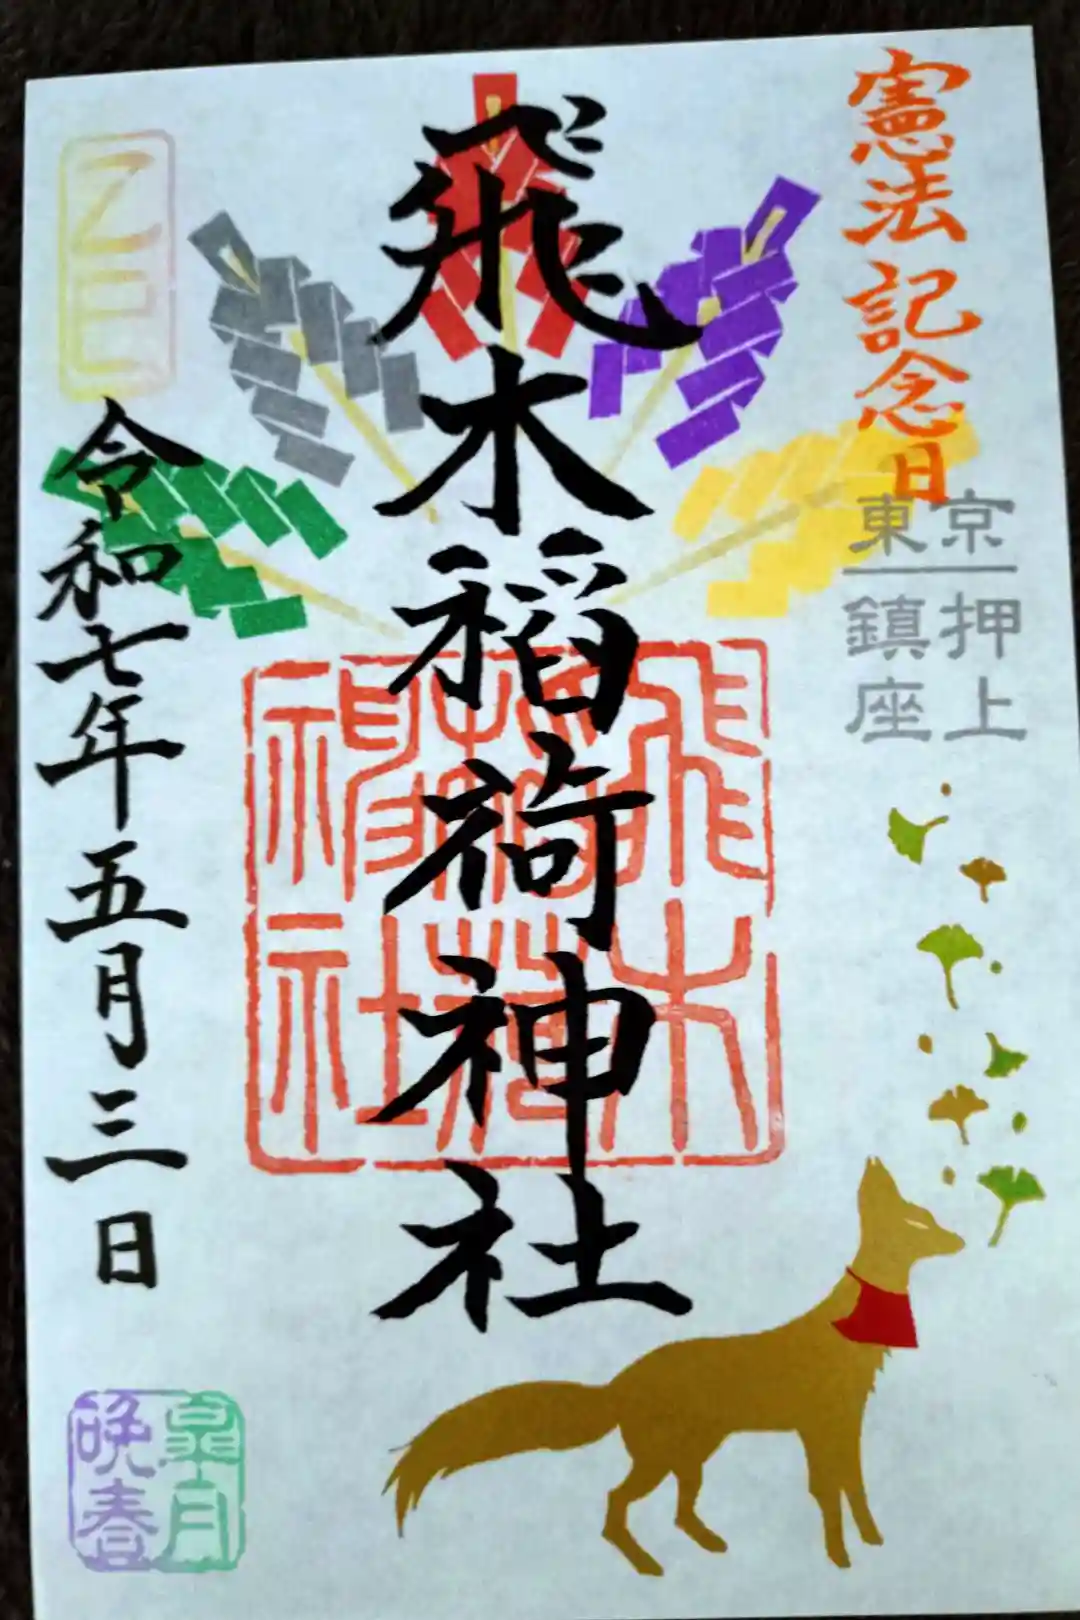 憲法記念日
東京
押上
鎮座
飛木稲荷神社
飛木
稲荷
神社
乙巳
令和七年五月三日
皐月
晩春